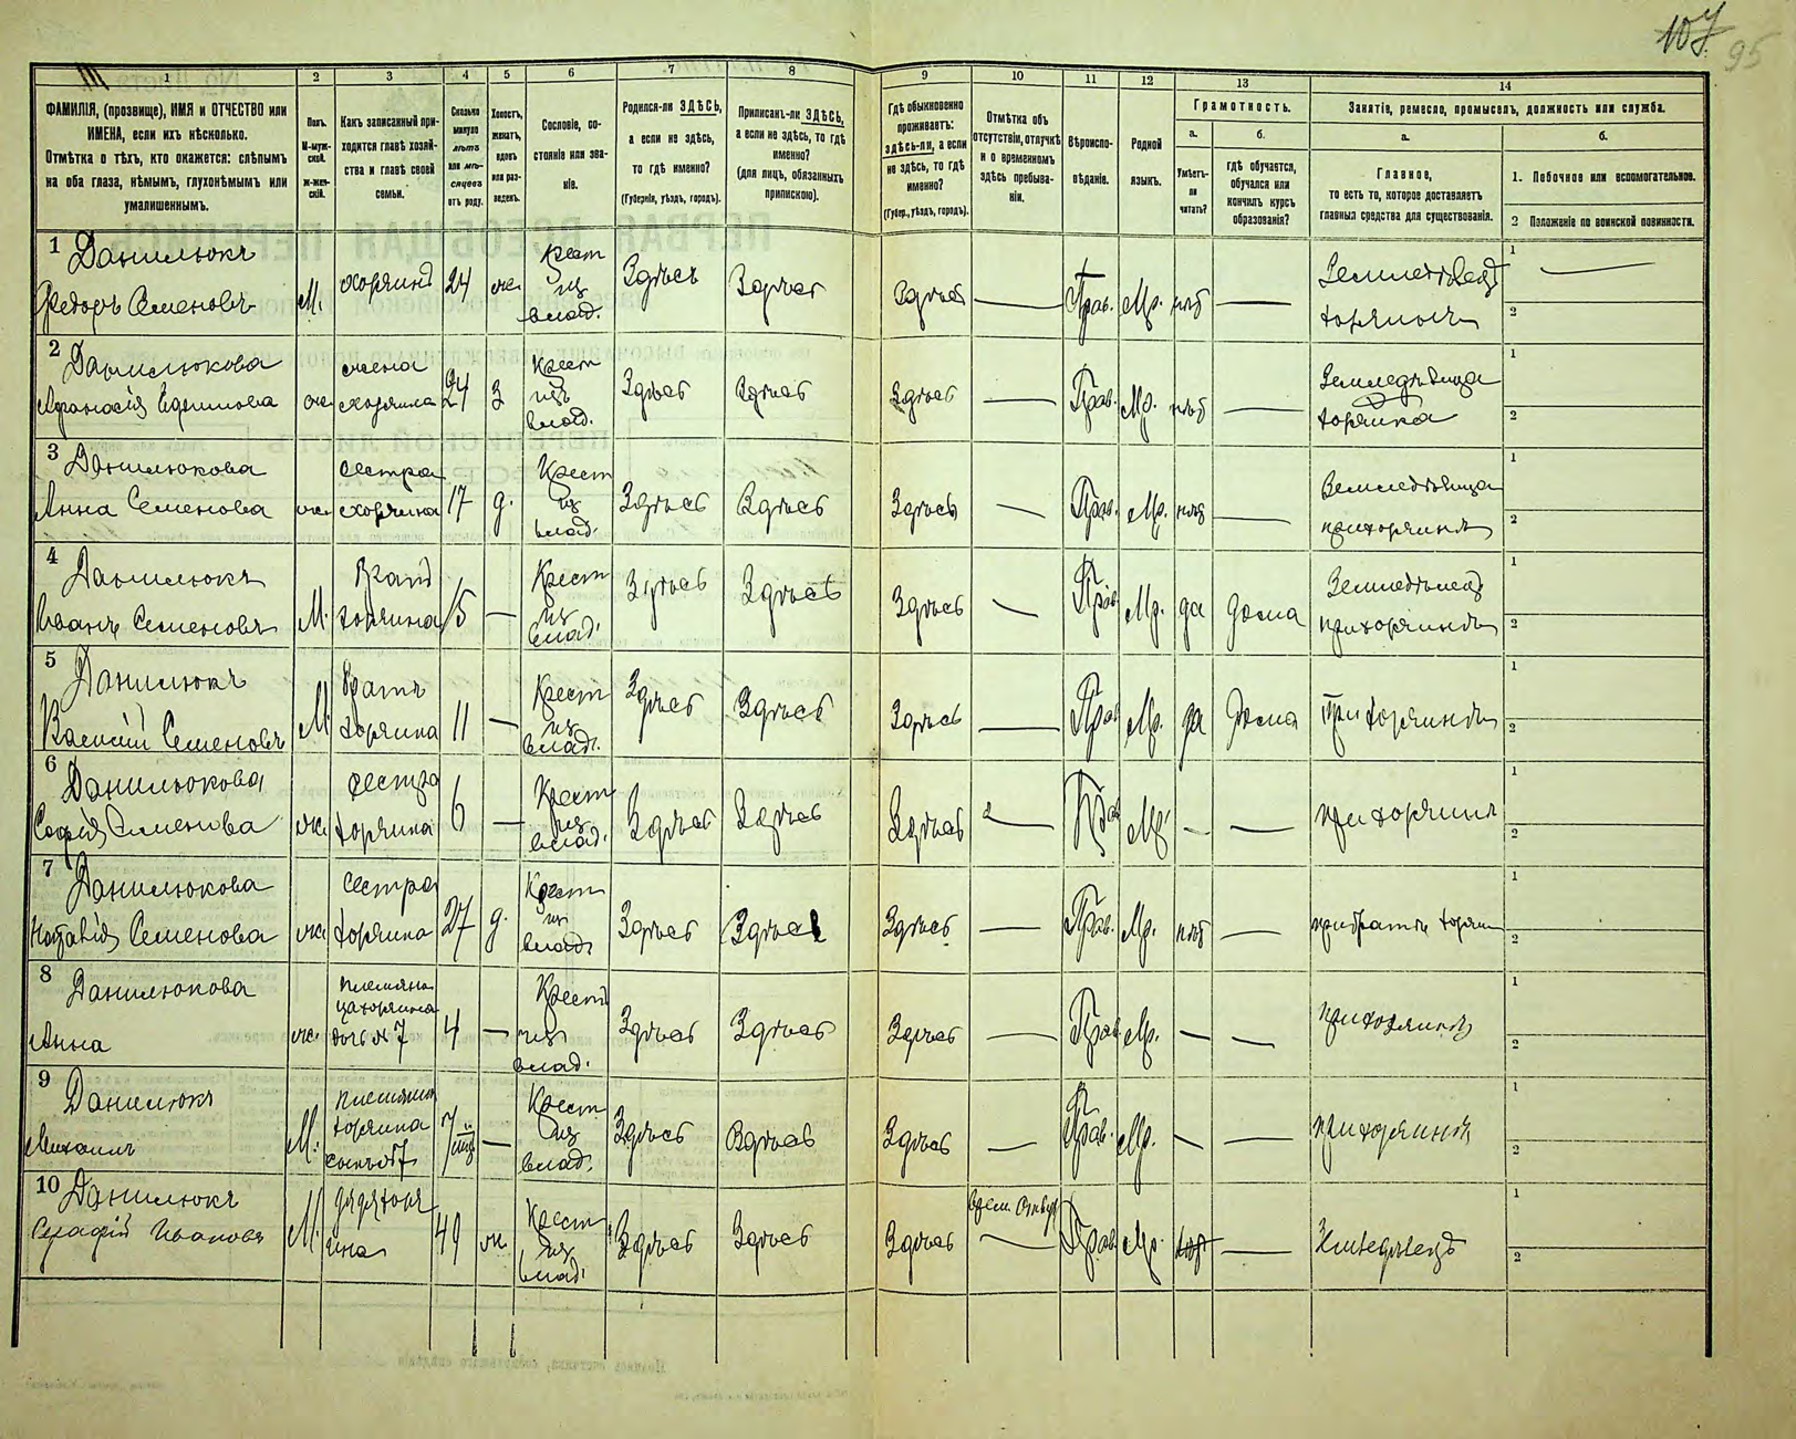 107
95
1
2
3
4
5
6
7
8
9
10
11
12
13
14
ФАМИЛІЯ, (прозвище), ИМЯ и ОТЧЕСТВО или
ИМЕНА, если ихъ нѣсколько.
Отмѣтка о тѣхъ, кто окажется: слѣпымъ
на оба глаза, нѣмымъ, глухонѣмымъ или
умалишеннымъ.
Полъ.
М-муж-
ской.
Ж-жен-
скій.
Какъ записанный при-
ходится главѣ хозяй-
ства и главѣ своей
семьи.
Сколько
минуло
лѣтъ
или мѣ-
сяцевъ
отъ роду.
Холостъ,
женатъ,
вдовъ
или раз-
веденъ.
Сословіе, со-
стояніе или зва-
ніе.
Родился-ли ЗДѢСЬ,
а если не здѣсь,
то гдѣ именно?
(Губернія, уѣздъ, городъ).
Приписанъ-ли ЗДѢСЬ,
а если не здѣсь, то гдѣ
именно?
(для лицъ, обязанныхъ
припискою).
Гдѣ обыкновенно
проживаетъ:
здѣсь-ли, а если
не здѣсь, то гдѣ
именно?
(Губер., уѣздъ, городъ).
Отмѣтка объ
отсутствіи, отлучкѣ
и о временномъ
здѣсь пребыва-
ніи.
Вѣроиспо-
вѣданіе.
Родной
языкъ.
Грамотность.
а.
Умѣетъ-
ли
читать?
б.
гдѣ обучается,
обучался или
кончилъ курсъ
образованія?
Занятіе, ремесло, промыселъ, должность или служба.
а.
Главное,
то есть то, которое доставляетъ
главныя средства для существованія.
б.
1. Побочное или вспомогательное.
2 Положеніе по воинской повинности.
1 Данилюкъ
Федоръ Семеновъ
М. хозяинъ 24 ж. Крест изъ влад. Здѣсь Здѣсь Здѣсь — Прав. Мр. нѣтъ — Земледѣлецъ хозяинъ 1 — 2
2 Данилюкова
Афанасія Ефимова
ж. жена хозяина 24 З Крест изъ влад. Здѣсь Здѣсь Здѣсь — Прав. Мр. нѣтъ — 1 2
3 Данилюкова
Анна Семенова
ж. сестра хозяина 17 д. Крест изъ влад. Здѣсь Здѣсь Здѣсь — Прав. Мр. нѣтъ — при хозяинѣ 1 2
4 Данилюкъ
Иванъ Семеновъ
М. братъ хозяина 15 — Крест изъ влад. Здѣсь Здѣсь Здѣсь — Прав Мр. да дома Земледѣлецъ при хозяинѣ 1 2
5 Данилюкъ
Василій Семеновъ
М братъ хозяина 11 — Крест изъ влад. Здѣсь Здѣсь Здѣсь — Прав Мр. да дома при хозяинѣ 1 2
6 Данилюкова
Софія Семенова
ж. сестра хозяина 6 — Крест изъ влад. Здѣсь Здѣсь Здѣсь — Прав Мр. — — при хозяинѣ 1 2
7 Данилюкова
Наталія Семенова
ж. сестра хозяина 27 д. Крест изъ влад. Здѣсь Здѣсь Здѣсь — Прав. Мр. нѣтъ — при братѣ хозяин 1 2
8 Данилюкова
Анна
ж. племянница хозяина дочь № 7 4 — Крест изъ влад. Здѣсь Здѣсь Здѣсь — Прав Мр. — — при хозяинѣ 1 2
9 Данилюкъ
Михаилъ
М. племянник хозяина сынъ № 7 7 мѣс — Крест изъ влад. Здѣсь Здѣсь Здѣсь — Прав. Мр. — — при хозяинѣ 1 2
10 Данилюкъ
Ивановъ
М дядя хозяина 49 ж. Крест изъ влад. Здѣсь Здѣсь Здѣсь — Прав Мр. нѣт — 1 2